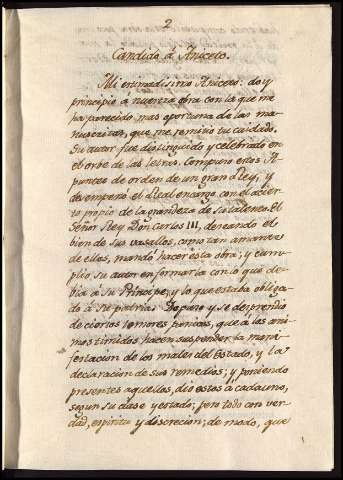 2
Candido á Aniceto.
Mi estimadisimo Aniceto: doy
principio á nuestra obra con la que me
ha parecido mas oportuna de las ma-
nuscritas, que me remitió tu cuidado.
Su autor fue distinguido y celebrado en
el orbe de las letras. Compuso estos A-
puntes de orden de un gran Rey, y
desempeñó el Real encargo con el acier-
to propio de la grandeza de sus talentos. El
Señor Rey Don Carlos III, deseando el
bien de sus vasallos, como tan amante
de ellos, mandó hacer esta obra; y cum-
plio su autor en formarla con lo que de-
bia á Su Principe, y lo que estaba obliga-
do á su patria. Depuso y se desprendio
de ciertos temores panicos, que á los ani-
mos timidos hacen suspender la mani-
festacion de los males del Estado, y la
declaracion de sus remedios; y poniendo
presentes aquellos, dio estos á cada uno,
segun su clase y estado; pero todo con ver-
dad, espiritu y discrecion; de modo, que